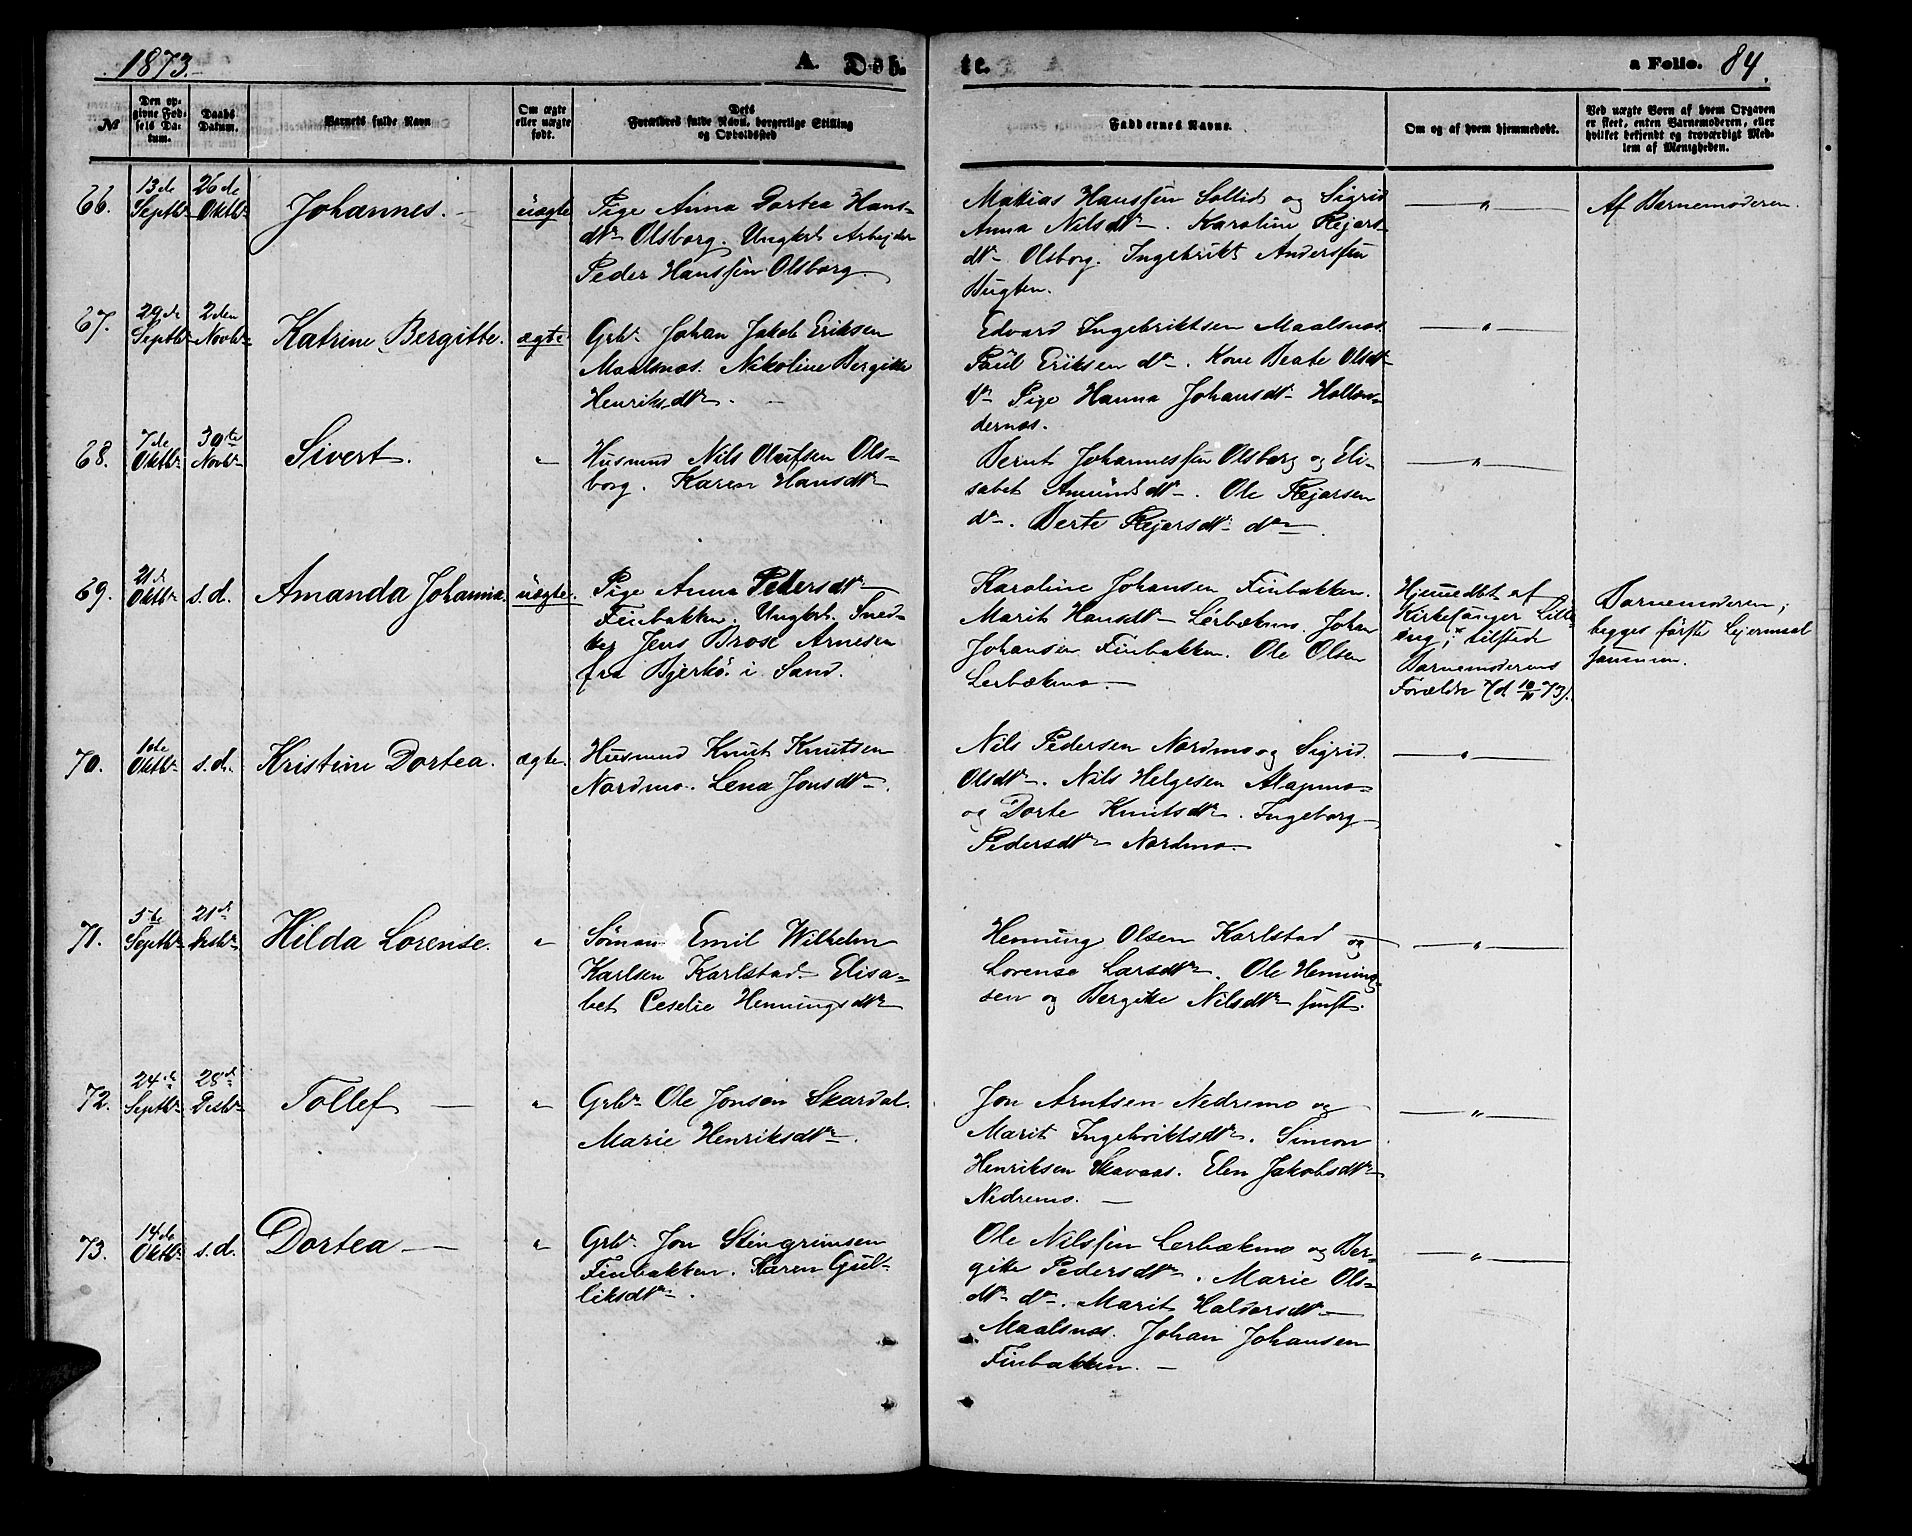 1873.
A. Døb-
te.
a Folio. 84.
№
Den op-
givne Fød-
sels Da-
tum.
Daabs
Datum.
Barnets fulde Navn
Om ægte
eller uægte
født.
Dets
Forældres fulde Navn, borgerlige Stilling
og Opholdssted
Faddernes Navne.
Om og af hvem hjemmedøbt.
Ved uægte Børn af hvem Opgaven
er skeet, enten Barnemoderen, eller
hvilket bekjendt og troværdigt Med-
lem af Menigheden.
66.
13de
Septbr
26de
Oktbr
Johannes.
uægte
Pige Anna Dortea Hans-
dtr Olsborg. Ungkrl Arbejder
Peder Hanssen Olsborg.
Matias Hanssen Sollid og Sigrid
Anna Nilsdtr. Karoline Rejers-
dtr Olsborg. Ingebrikt Anderssen
Bugten.
— " —
Af Barnemoderen.
67.
29de
Septbr
2den
Novbr
Katrine Bergitte.
ægte
Grbr. Johan Jakob Eriksen
Maalsnæs. Nikoline Bergitte
Henriksdtr.
Edvard Ingebriktsen Maalsnæs.
Paul Eriksen do. Kone Beate Olsdtr
do Pige Hanna Johansdtr Hollen-
dernæs.
— " —
68.
7de
Oktbr
30te
Novbr
Sivert.
"
Husmnd Nils Olufsen Ols-
borg. Karen Hansdtr
Bernt Johannessen Olsborg og Eli-
sabet Amundsdtr. Ole Rejersen
do. Berte Rejersdtr do
— " —
69.
21de
Oktbr
s.d.
Amanda Johanna.
uægte.
Pige Anna Pedersdtr
Finbakken. Ungkrl. Sned-
ker Jens Brose Arnesen
fra Bjerkö i Sand.
Karoline Johansen Finbakken.
Marit Hansdtr Lerbækmo. Johan
Johansen Finbakken. Ole Olsen
Lerbækmo.
Hjemmedbt af
Kirkesanger
tilstede
Barnemoderens
Forældre
Barnemoderen;
begges første Lejermaal
sammen.
70.
1ste
Oktbr
s.d.
Kristine Dortea.
ægte.
Husmnd Knut Knutsen
Nordmo. Lena Jonsdtr.
Nils Pedersen Nordmo og Sigrid
Olsdtr. Nils Helgesen Alapmo
og Dorte Knutsdtr. Ingeborg
Pedersdtr Nordmo.
— " —
71.
5te
Septbr
21de
Desbr
Hilda Lorense.
"
Sömand Emil Wilhelm
Karlsen Karlstad. Elisa-
bet Ceselie Henningsdtr
Henning Olsen Karlstad og
Lorense Larsdtr. Ole Henning-
sen og Bergitte Nilsdtr
— " —
72.
24de
Septbr
28de
Desbr
Tollef —
"
Grbr Ole Jonsen Skardal.
Marie Henriksdtr.
Jon Arntsen Nedremo og
Marit Ingebriktsdtr. Simon
Henriksen Skavaas. Elen Jakobsdtr
Nedremo. —
— " —
73.
14de
Oktbr
s.d.
Dortea —
"
Grbr. Jon Stengrimsen
Finbakken. Karen Gul-
liksdtr.
Ole Nilssen Lerbækmo og Ber-
gitte Pedersdtr. Marie Ols-
dtr do. Marit Haldorsdtr
Maalsnæs. Johan Johansen
Finbakken. —
— " —